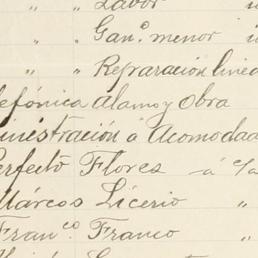 " " Labor
" " Gan.º menor
" " Reparación linea
efónica Alamo y Obra
ministración a Acomodad
erfecto Flores - á c/
Márcos Licerio "
Fran.co Franco "